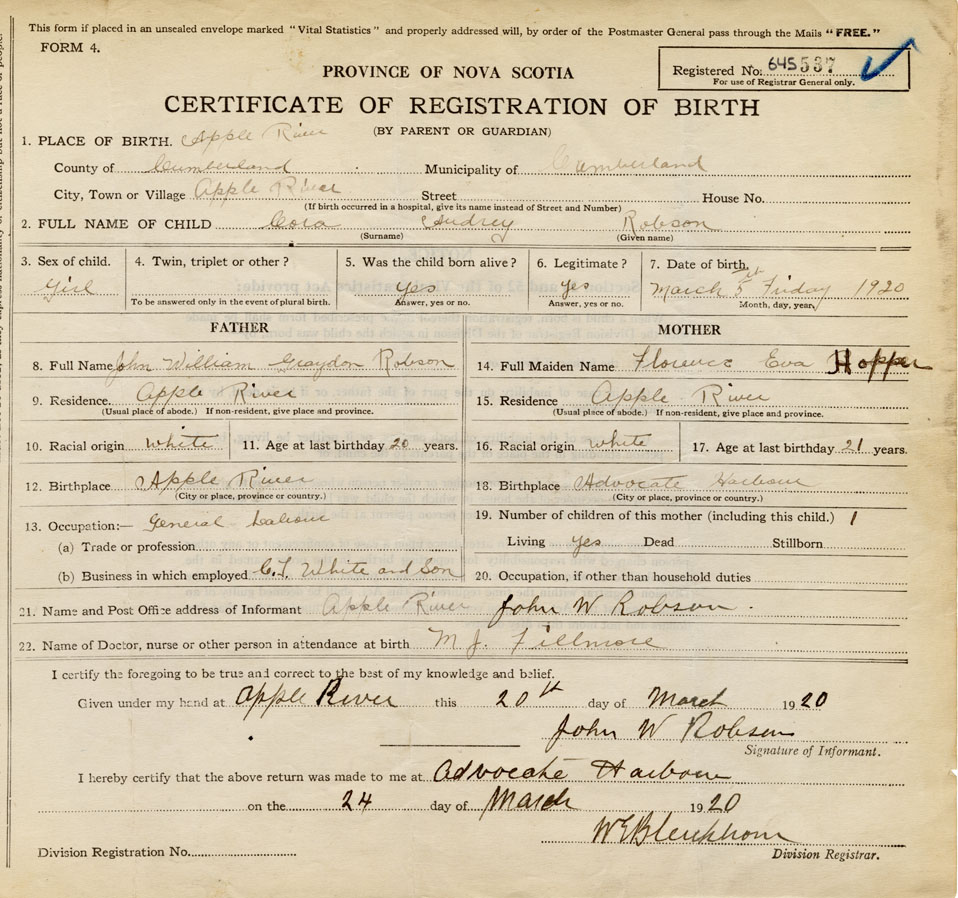 This form if placed in an unsealed envelope marked "Vital Statistics" and properly addressed will, by order of the Postmaster General pass through the Mails "FREE."
FORM 4.
Registered No: 645537
For use of Registrar General only.
PROVINCE OF NOVA SCOTIA
CERTIFICATE OF REGISTRATION OF BIRTH
(BY PARENT OR GUARDIAN)
1. PLACE OF BIRTH. Apple River
County of Cumberland Municipality of Cumberland
City, Town or Village Apple River Street House No.
(If birth occurred in a hospital, give its name instead of Street and Number)
2. FULL NAME OF CHILD Cora Audrey Robson
(Surname) (Given name)
3. Sex of child. 4. Twin, triplet or other? 5. Was the child born alive? 6. Legitimate? 7. Date of birth.
Girl yes yes March 5 Friday 1920
To be answered only in the event of plural birth. Answer, yes or no. Answer, yes or no. Month, day, year,
FATHER MOTHER
8. Full Name John William Graydon Robson 14. Full Maiden Name Florence Eva Hopper
9. Residence. Apple River 15. Residence Apple River
(Usual place of abode.) If non-resident, give place and province. (Usual place of abode.) If non-resident, give place and province.
10. Racial origin white 11. Age at last birthday 20 years. 16. Racial origin white 17. Age at last birthday 21 years.
12. Birthplace Apple River 18. Birthplace Advocate Harbour
(City or place, province or country.) (City or place, province or country.)
13. Occupation:— General Labour 19. Number of children of this mother (including this child.) 1
(a) Trade or profession Living yes Dead Stillborn
(b) Business in which employed C.T. White and Son 20. Occupation, if other than household duties
21. Name and Post Office address of Informant Apple River John W Robson.
22. Name of Doctor, nurse or other person in attendance at birth M J. Fillmore
I certify the foregoing to be true and correct to the best of my knowledge and belief.
Given under my hand at Apple River this 20th day of March 1920
John W Robson
Signature of Informant.
I hereby certify that the above return was made to me at Advocate Harbour
on the 24 day of March 1920
Division Registration No.
Division Registrar.